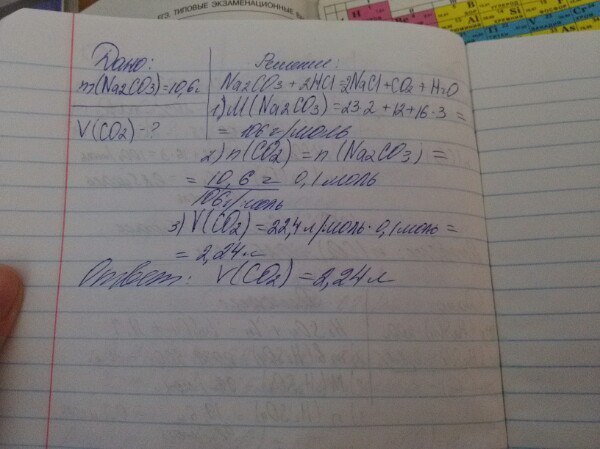 ЕГЭ. ТИПОВЫЕ ЭКЗАМЕНАЦИОННЫЕ
Дано:
m(Na2CO3)=10,6г
V(CO2)-?
Решение:
Na2CO3+2HCl=2NaCl+CO2+H2O
1) M(Na2CO3)=23·2+12+16·3=
=106 г/моль
2) n(CO2)=n(Na2CO3)=
=10,6 г 0,1 моль
106 г/моль
3) V(CO2)=22,4 л/моль·0,1 моль=
=2,24 л
Ответ: V(CO2)=2,24 л